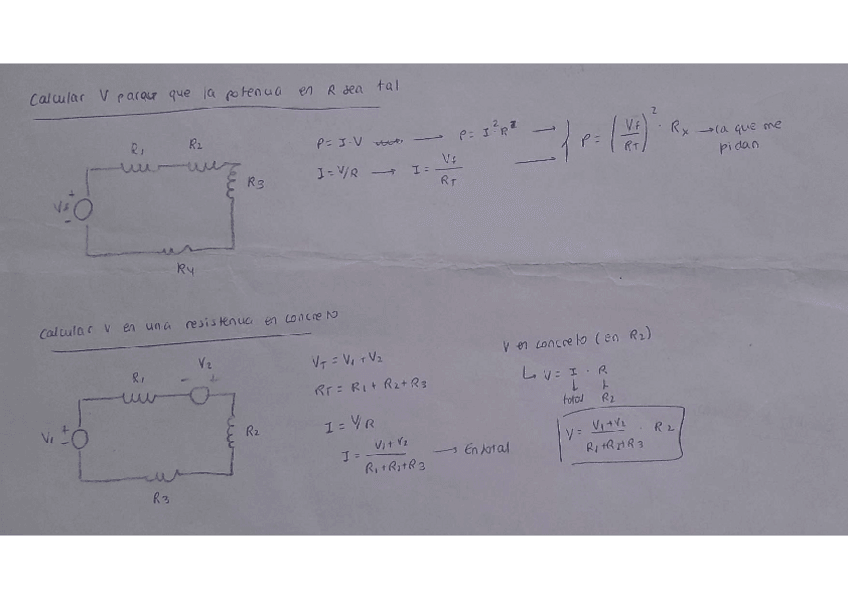 Calcular V para que la potencia en R sea tal
R1 R2
R3
Vs + -
R4
P = I·V → P = I²R
I = V/R → I = Vs/RT
P = (Vs/RT)² · Rx → la que me
pidan
Calcular V en una resistencia en concreto
R1 - V2 +
V1 + -
R2
R3
VT = V1 + V2
RT = R1 + R2 + R3
I = V/R
I = V1 + V2 / R1 + R2 + R3 → En total
V en concreto (en R2)
↳ V = I · R
total R2
V = V1 + V2 / R1 + R2 + R3 · R2